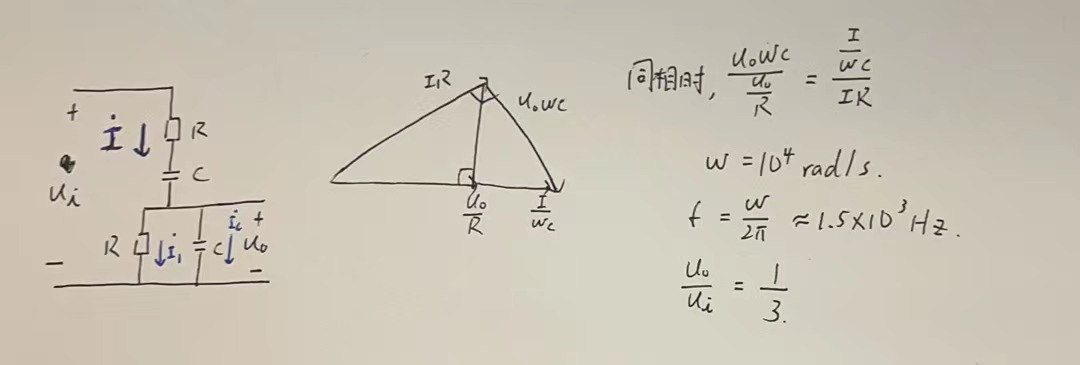 +
İ↓
R
C
u̇i
R
↓İ₁
C
İc
↓
+
u₀
-
-
I₁R
u₀wc
u₀/R
I/wc
同相时, (u₀wc)/(u₀/R) = (I/wc)/(IR)
w = 10⁴ rad/s.
f = w/2π ≈ 1.5×10³ Hz.
u₀/ui = 1/3.